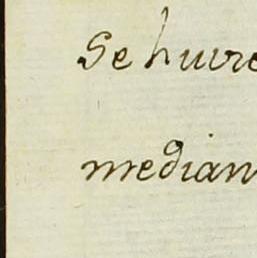 Se huvie
median